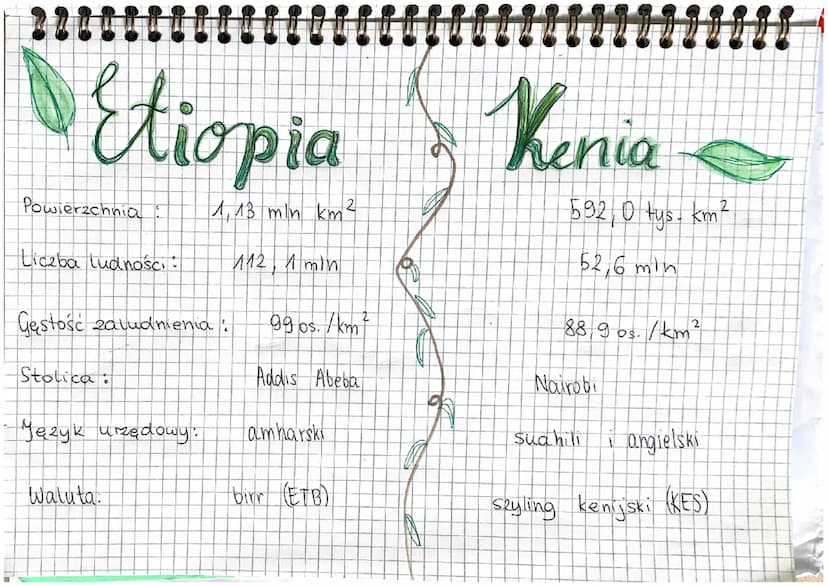 Etiopia Kenia
Powierzchnia : 1,13 mln km² 592,0 tys. km²
Liczba ludności : 112,1 mln 52,6 mln
Gęstość zaludnienia : 99 os./km² 88,9 os./km²
Stolica : Addis Abeba Nairobi
Język urzędowy: amharski suahili i angielski
Waluta: birr (ETB) szyling kenijski (KES)